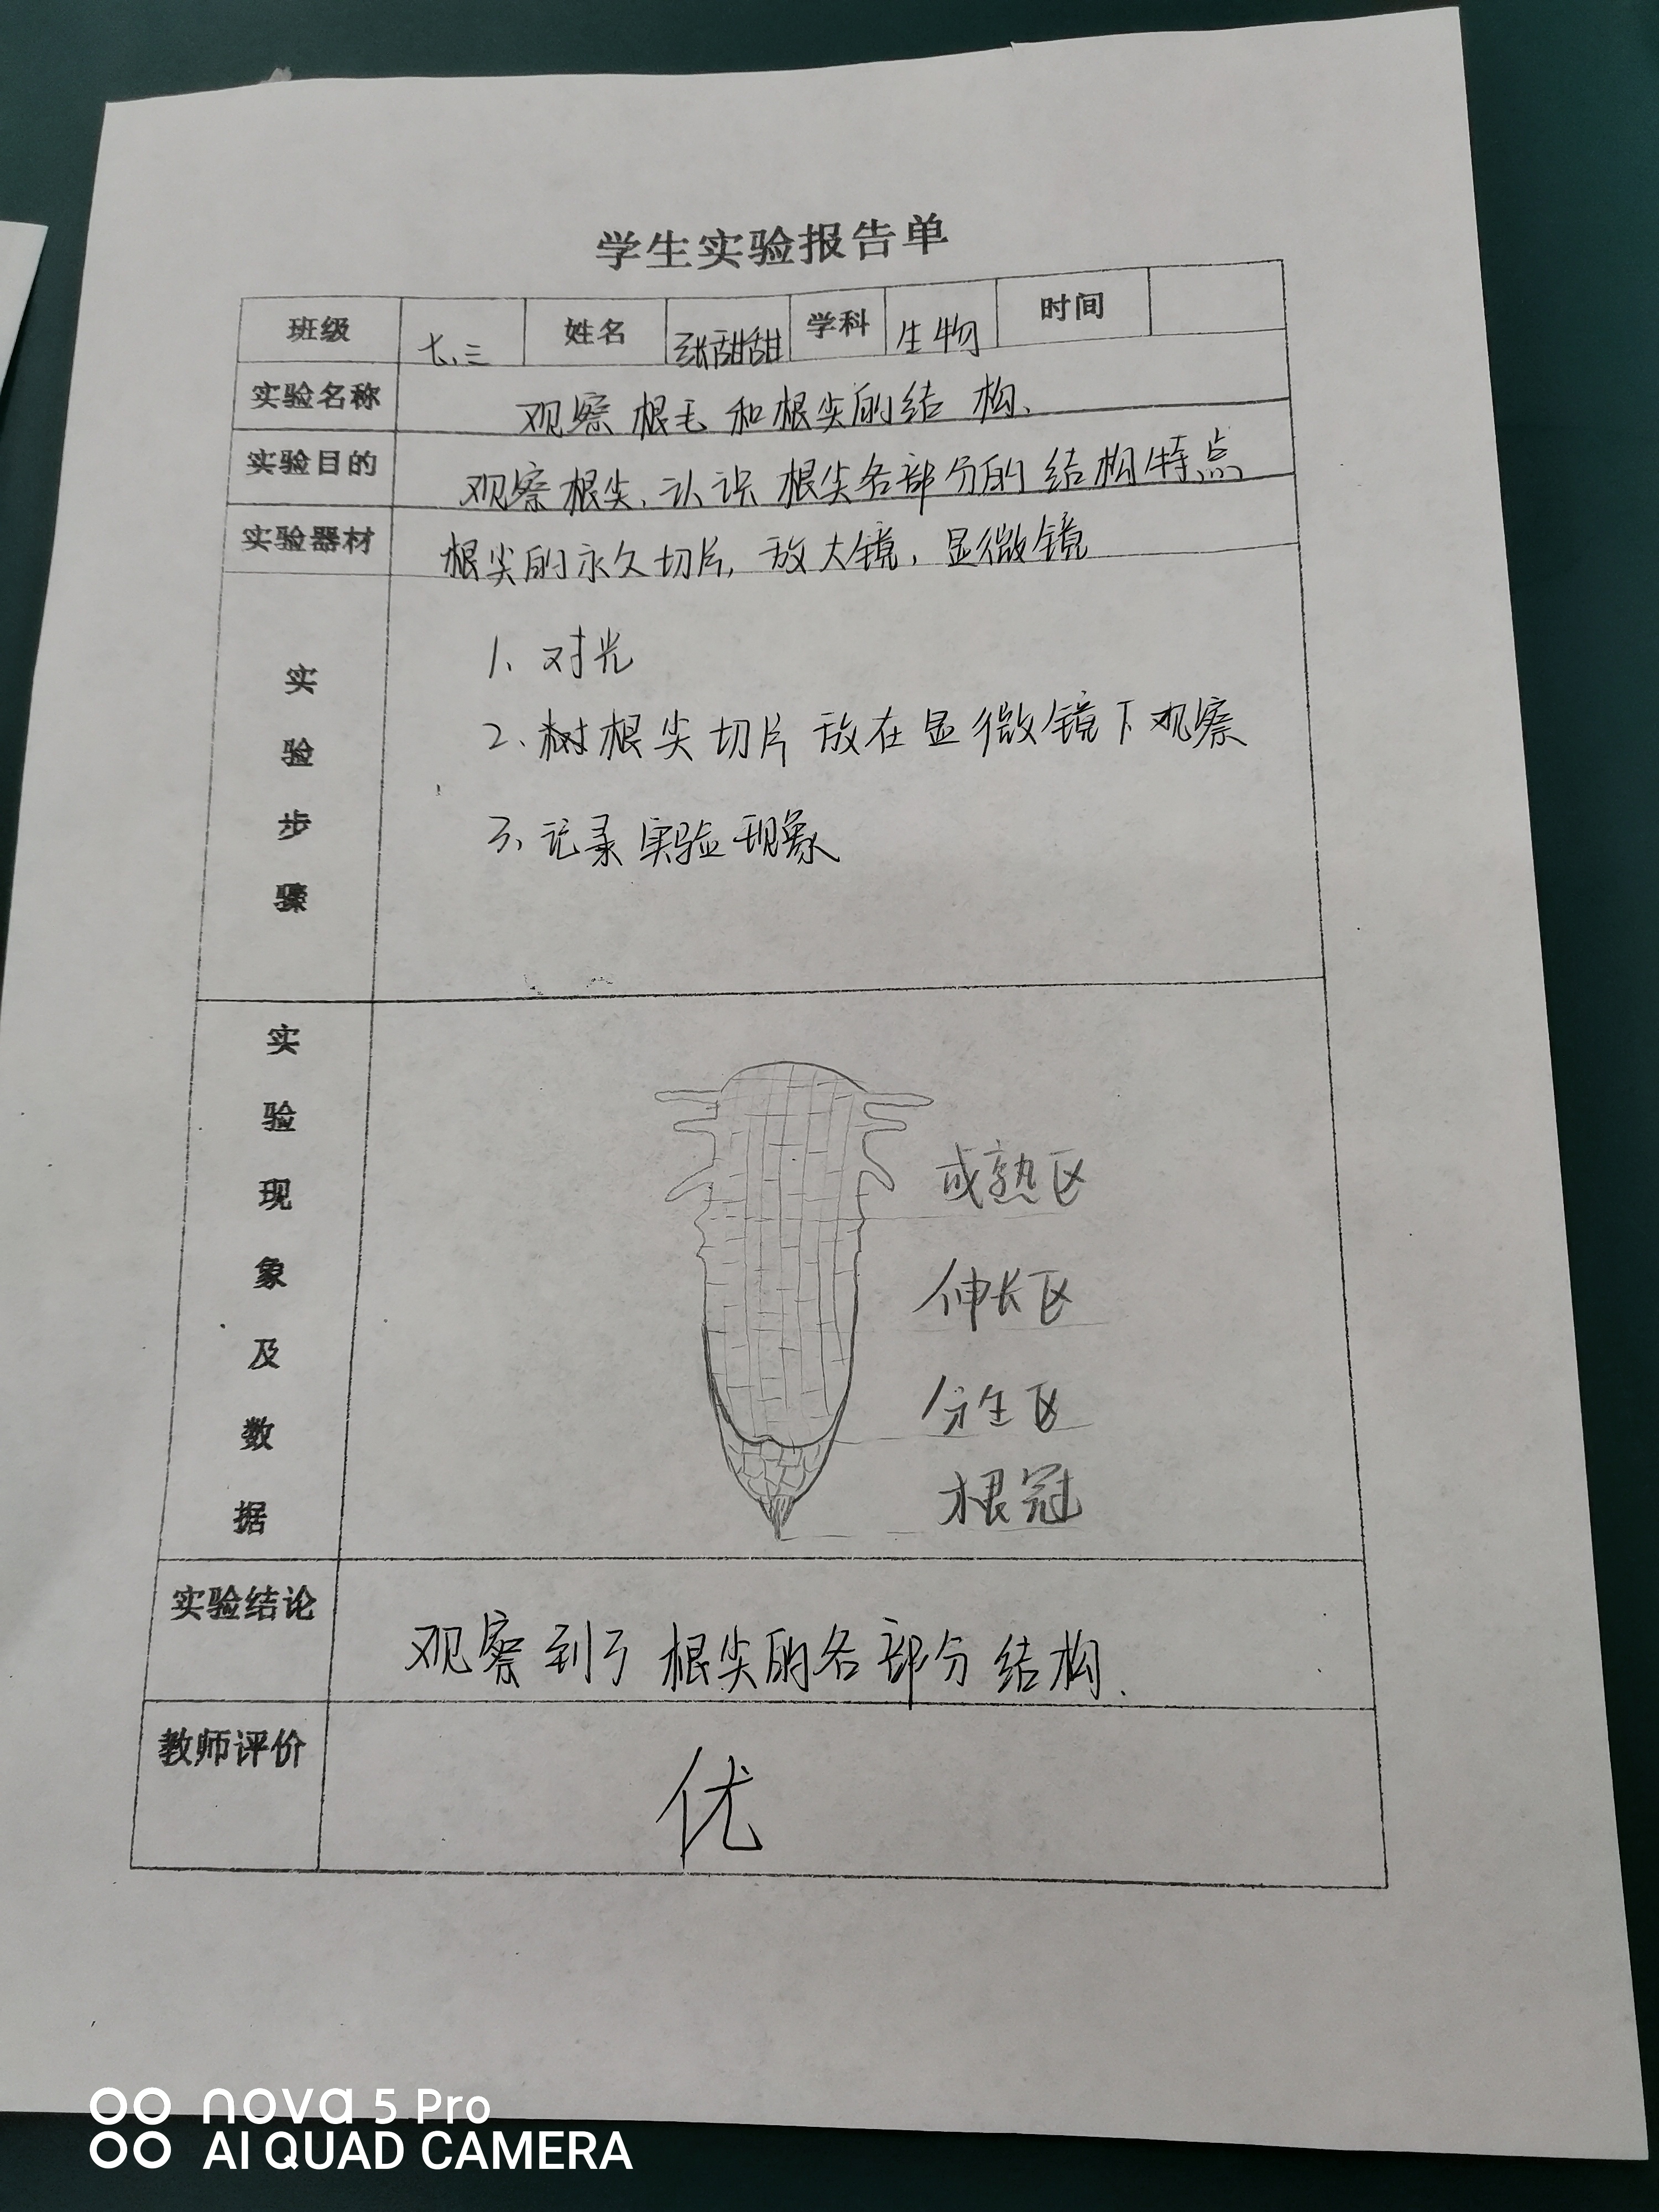 学生实验报告单
班级 七.三 姓名 张甜甜 学科 生物 时间
实验名称 观察根毛和根尖的结构.
实验目的 观察根尖、认识根尖各部分的结构特点
实验器材 根尖的永久切片, 放大镜, 显微镜
实验步骤
1、对光
2、树根尖切片放在显微镜下观察
3、记录实验现象
实验现象及数据
成熟区
伸长区
分生区
根冠
实验结论 观察到了根尖的各部分结构.
教师评价 优
nova 5 Pro
AI QUAD CAMERA